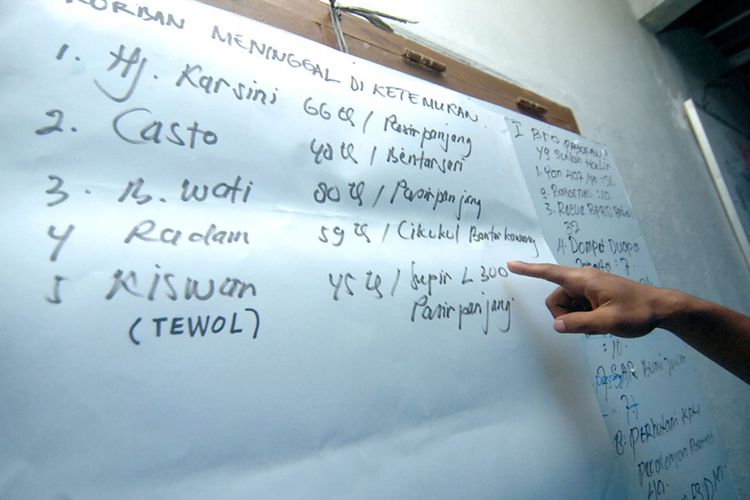 KORBAN MENINGGAL DI KETEMUKAN
1. Hj. Karsini 66 th / Pasirpanjang
2. Casto 40 th / Bentarsari
3. B. Wati 80 th / Pasirpanjang
4 Radam 59 th / Cikukul Bantarkawung
5 Kiswan 45 th / Supir L 300
(TEWOL) Pasirpanjang
I BPO
yg sudah
1. Yon 407
2. Basarnas : 10
3.
32
4. Dompet Duapa
: 7
: 10
7) SAR Bumi
7
8. PERHUTANI KPH